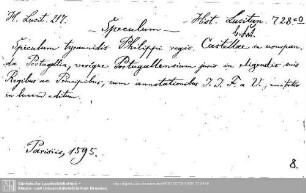 H. Lusit. 217.
Hist. Lusitan. 728
— Speculum —
Speculum tyrannidis Philippi regis Castellae in usurpan-
da Portugallia, verique Portugallensium juris in eligendis suis
Regibus ac Principibus, cum annotationibus I. I. F. a V.
in lucem editum.
Parisiis, 1595.
8.
Sächsische Landesbibliothek -
Staats- und Universitätsbibliothek Dresden